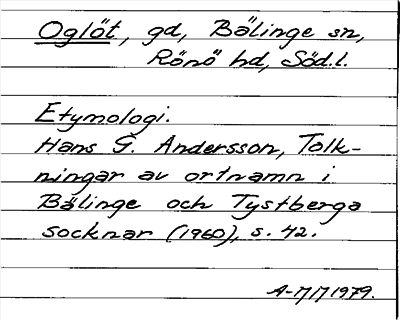 Oglöt, gd, Bälinge sn,
Rönö hd, Söd.l.
Etymologi.
Hans G. Andersson, Tolk-
ningar av ortnamn i
Bälinge och Tystberga
socknar (1960), s. 42.
A-M M 1979.